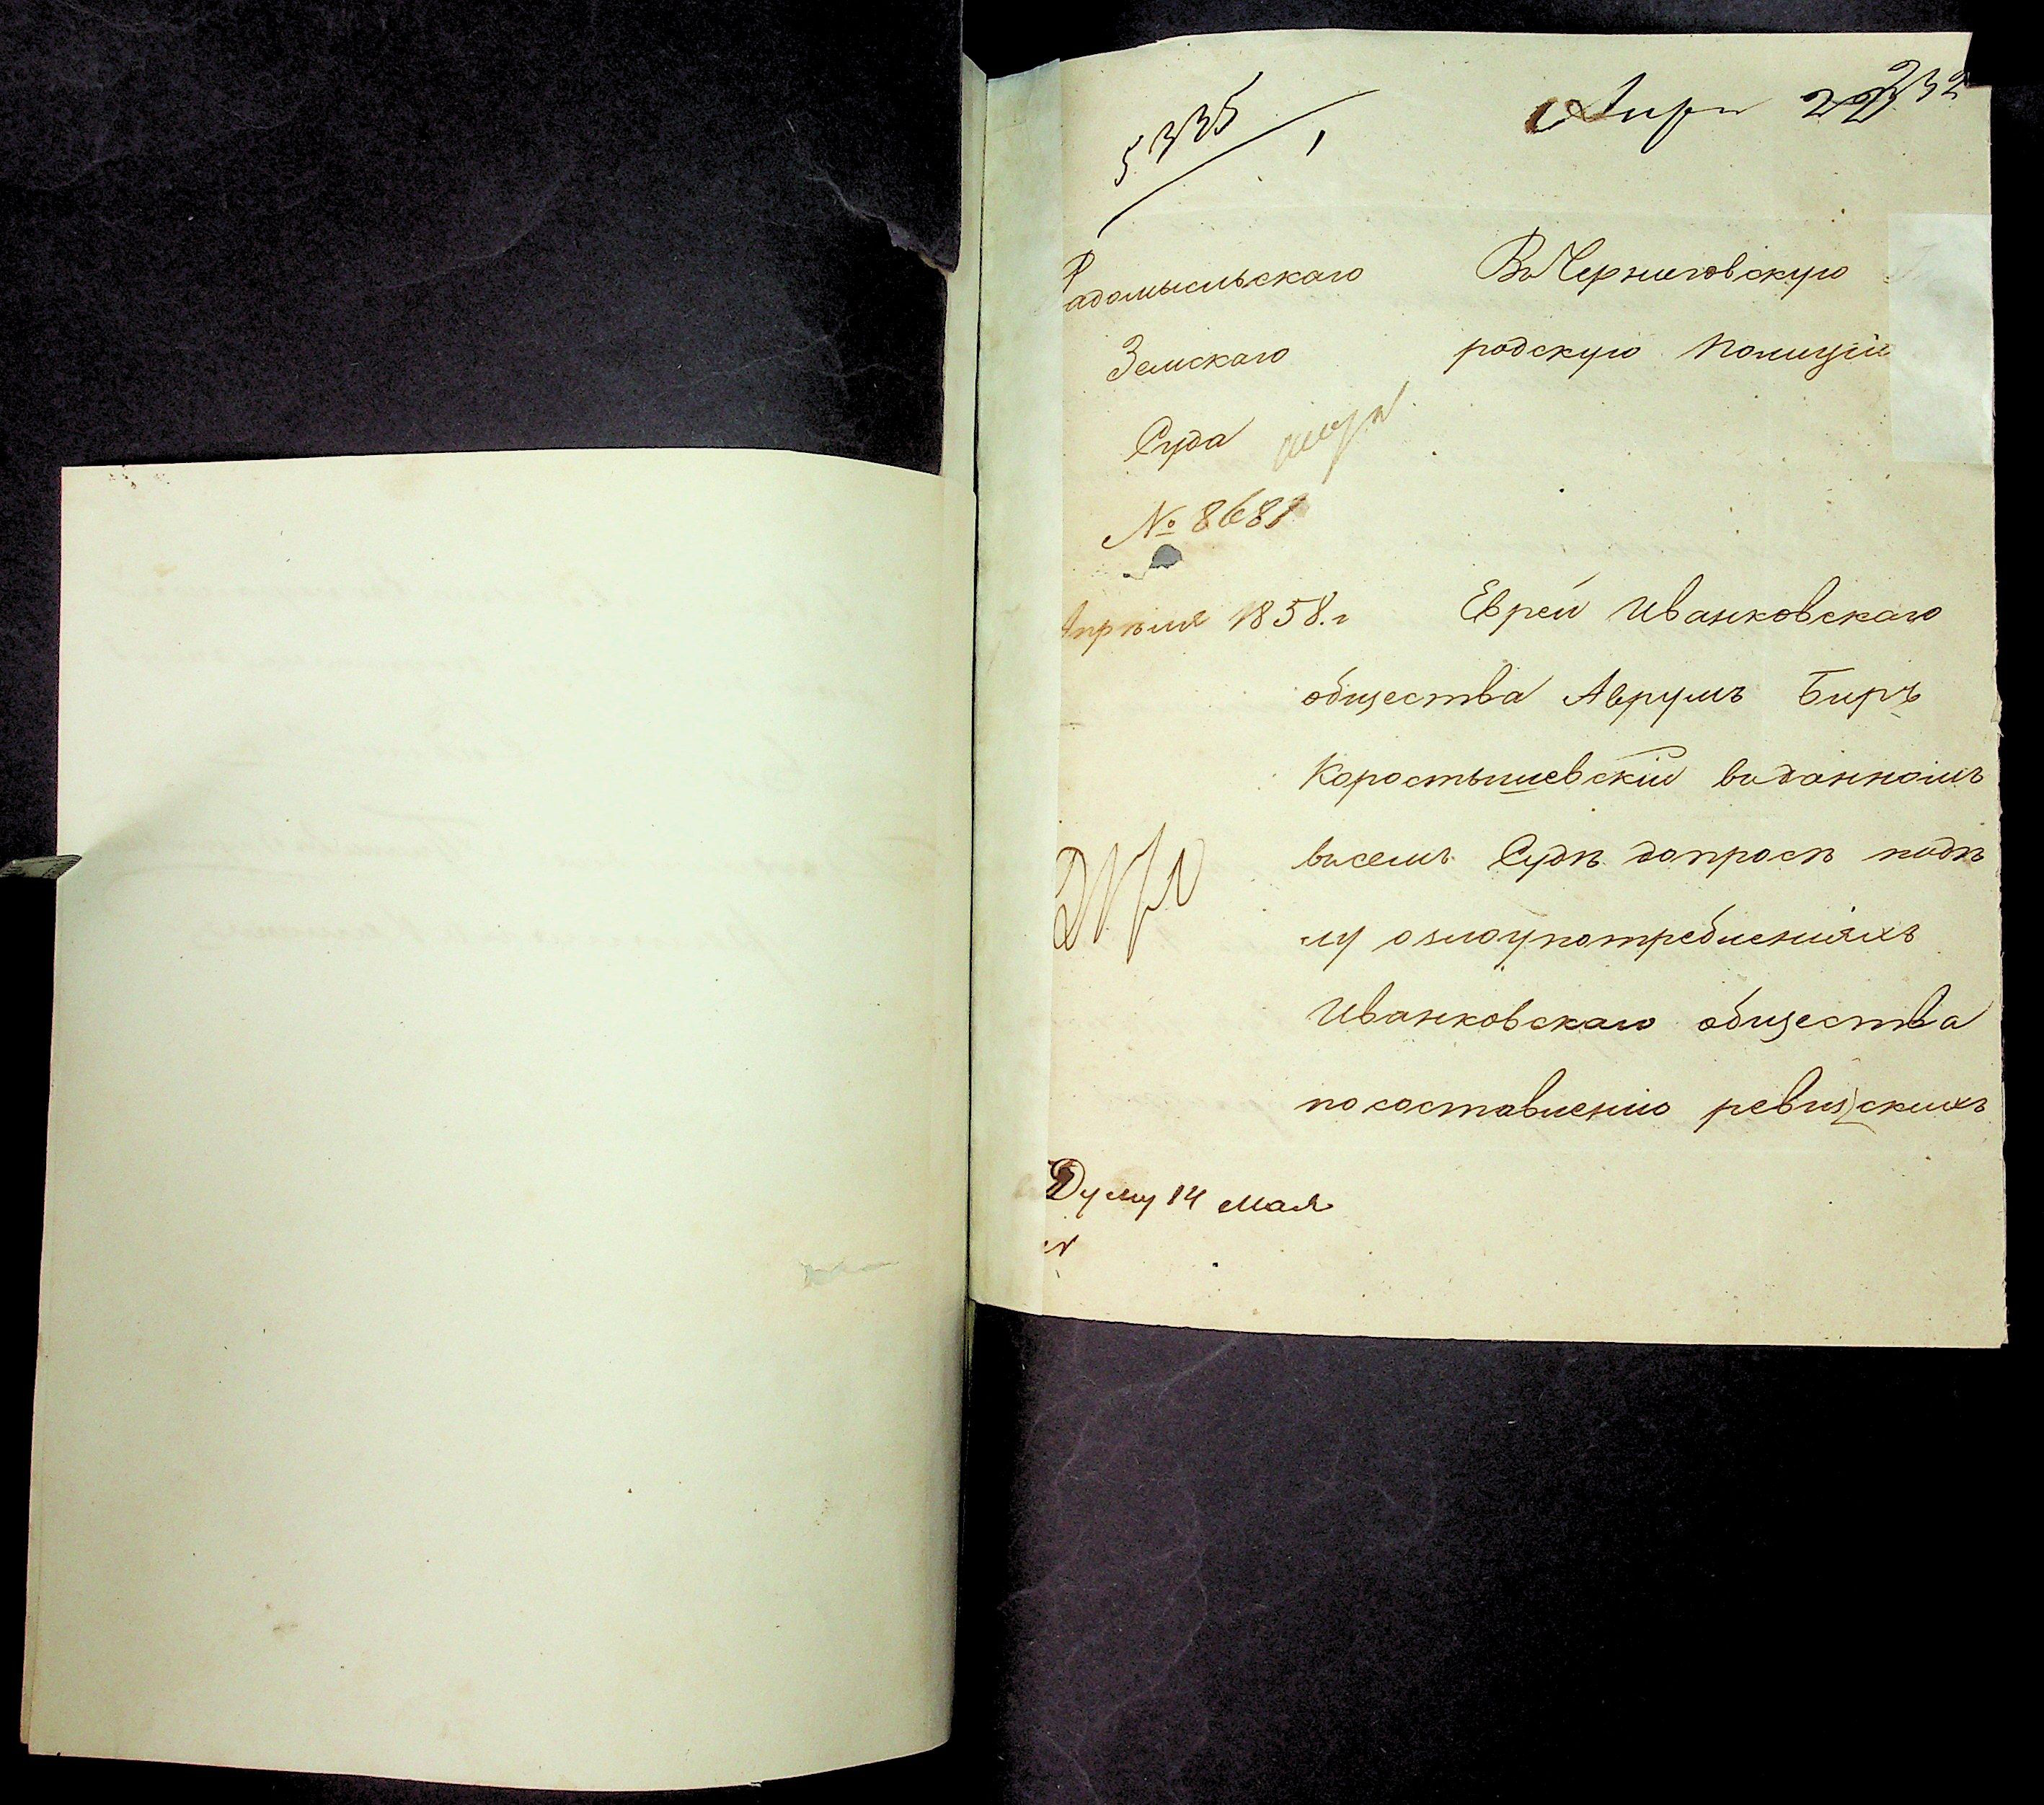 5335
232
Апр 22
Радомысльскаго
Земскаго
Суда
№ 8681
Апрѣля 1858.г
Въ Черниговскую
родскую Полицію
Еврей Иванковскаго
общества Аврумъ Биръ
Коростышевскій вданномъ
всемъ Судѣ допросѣ подѣ
лу озлоупотребленіяхъ
Иванковскаго общества
посоставленію ревизскихъ
Думу 14 мая